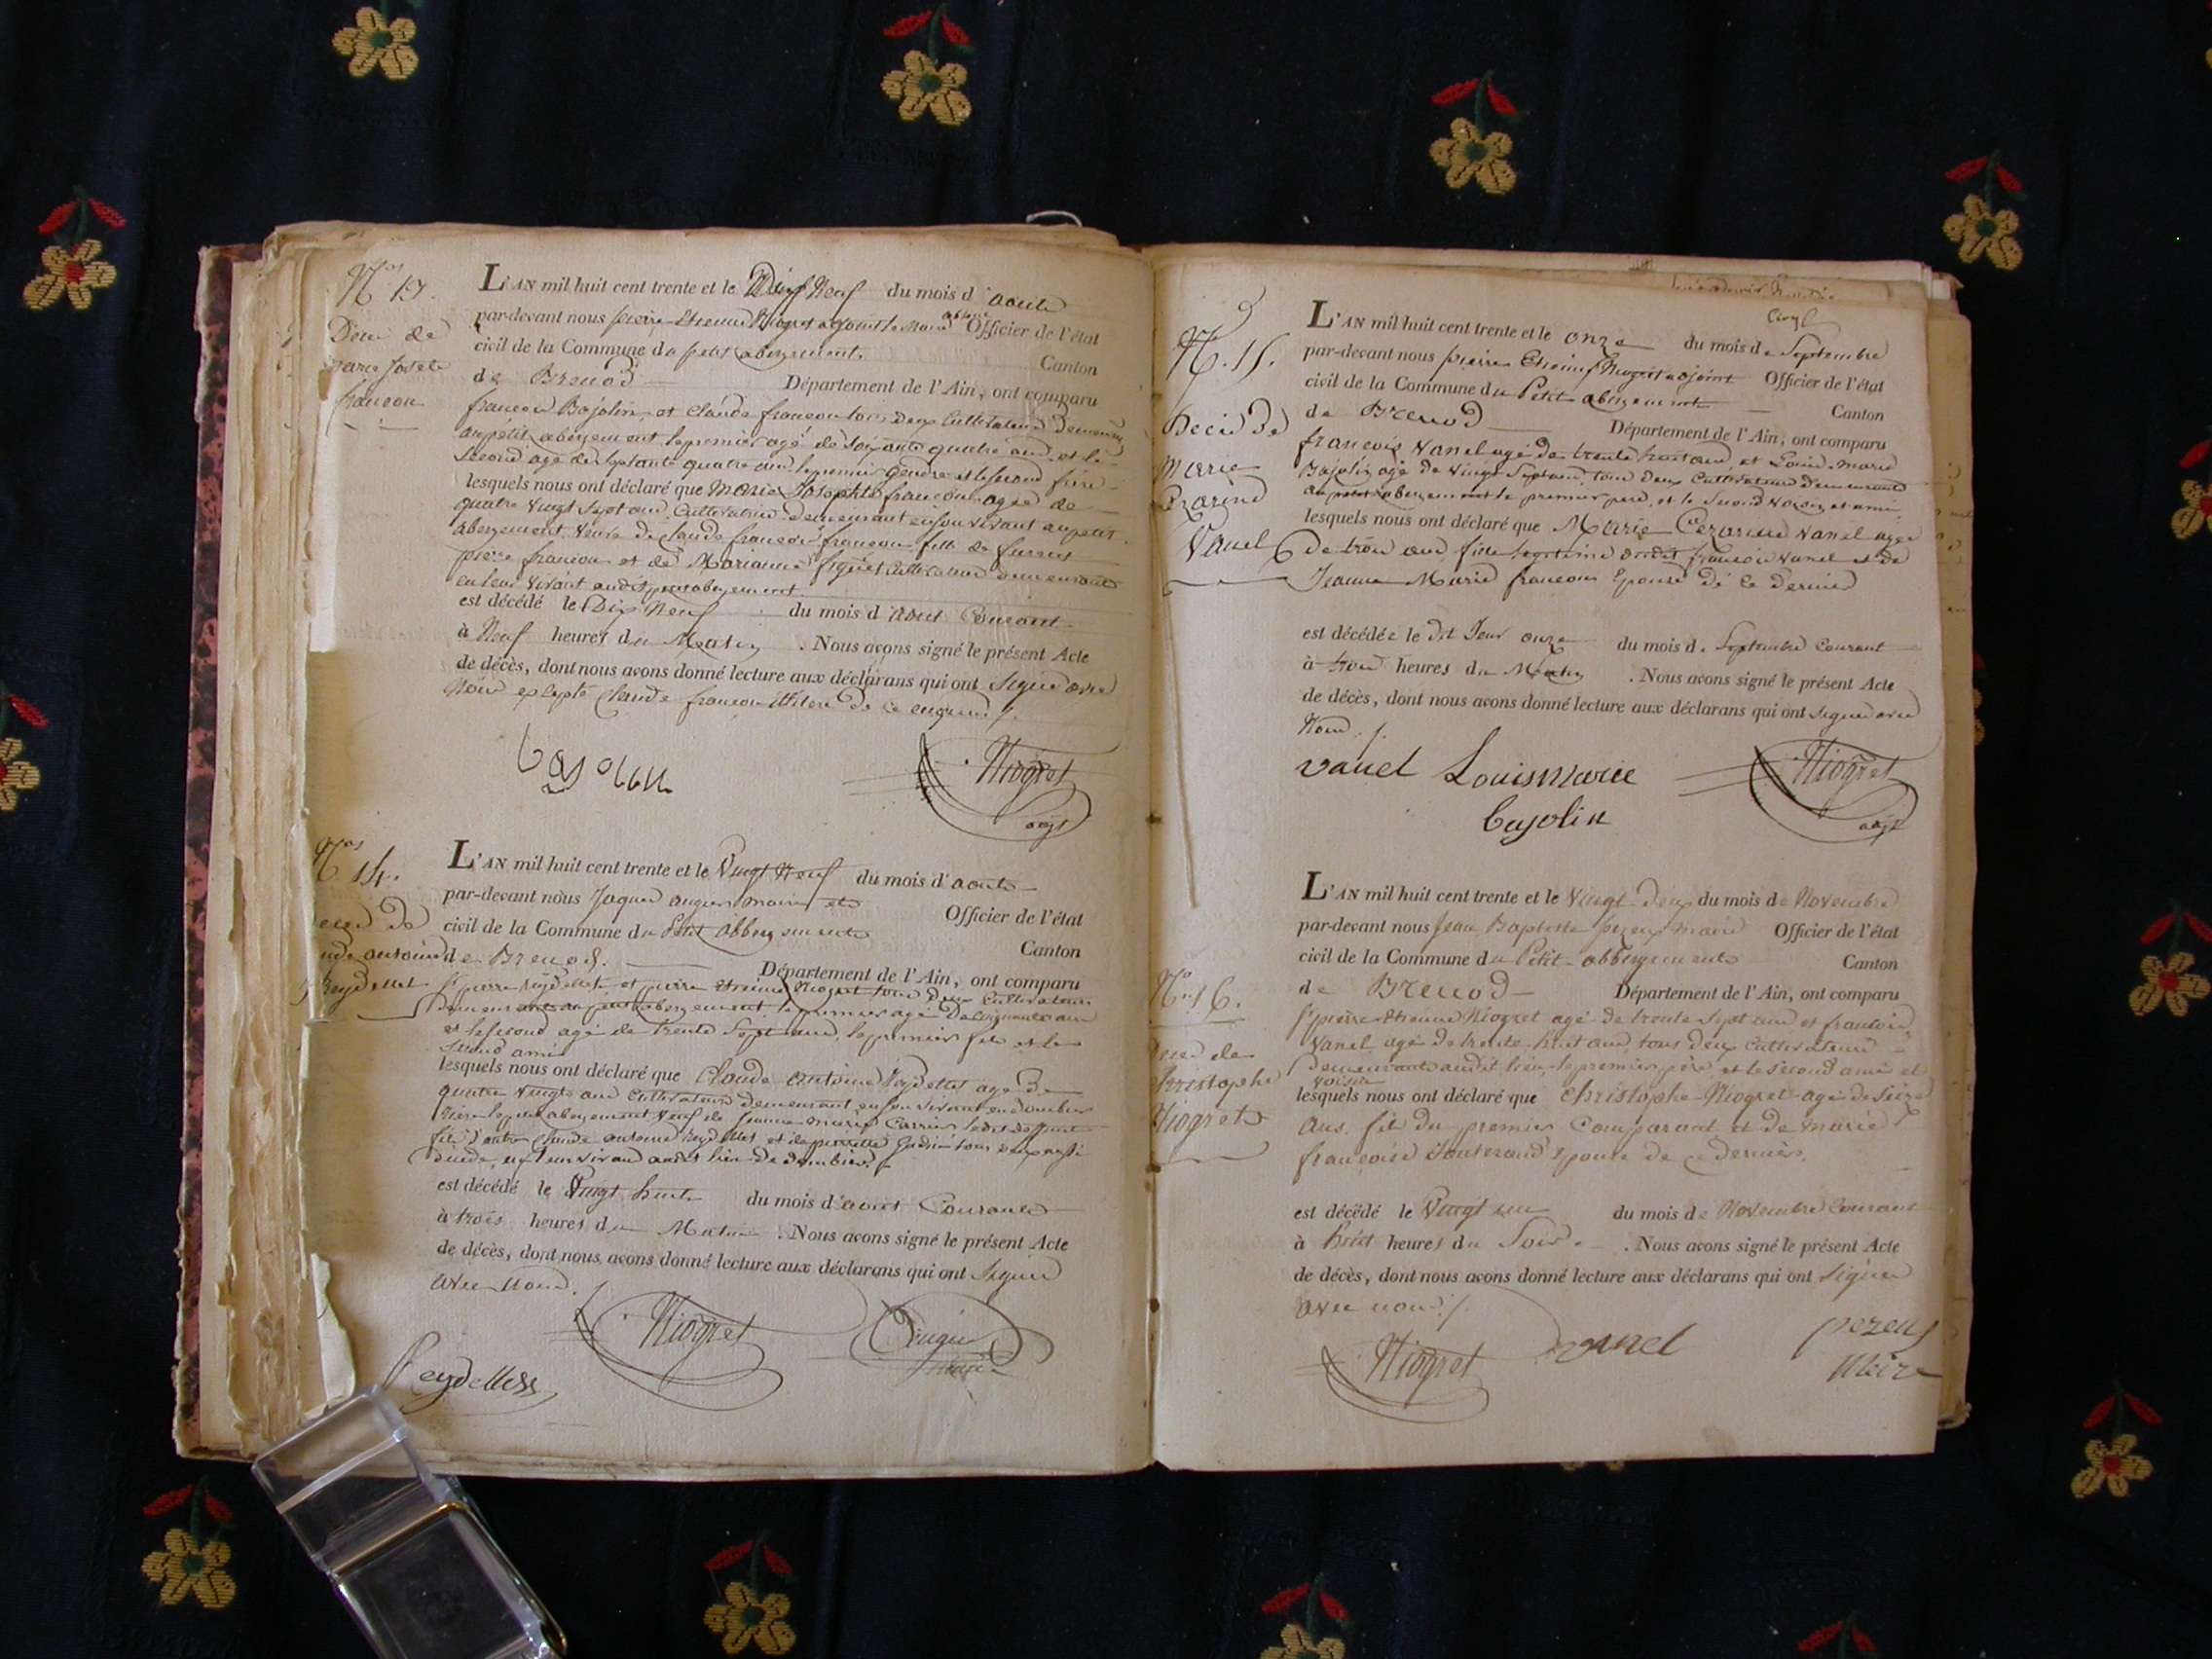 N.os 13.
Décè de
marie Josete
francon
L'AN mil huit cent trente et le Dix Neuf du mois d'aoute
par-devant nous pierre Etienne Niogret adjoint le Maire absent Officier de l'état
civil de la Commune du petit abergement. Canton
de Brenod Département de l'Ain, ont comparu
francon Bajolin et Claude francon tous deux Cultivateurs demeurant
au petit abergement le premier agé de soixante quatre ans et le
Second agé de septante quatre ans le premier gendre et le second frère
lesquels nous ont déclaré que Marie Josephte francon agée de
quatre vingt sept ans Cultivatrice demeurant en son vivant au petit
abergement veuve de Claude francon fille de
pierre francon et de Marianne Cultivateurs demeurant
en leur vivant audit petit abergement
est décédé le Dix Neuf du mois d'aout Courant
à Neuf heures du Matin. Nous avons signé le présent Acte
de décès, dont nous avons donné lecture aux déclarans qui ont Signé avec
Nous excepté Claude francon de ce enquis ./.
bajolin Niogret
adjt
N.os 14.
de
antoine
Reydellet
L'AN mil huit cent trente et le Vingt Neuf du mois d'aoute
par-devant nous Jaques augier maire et Officier de l'état
civil de la Commune du Petit abbergemente Canton
de Brenod. Département de l'Ain, ont comparu
Sr pierre reydellet et pierre etienne Niogret tous deux Cultivateurs
Demeurants au petit abergement le premier agé De cinquante ans
et le second agé de trente Sept ans, le premier fils et le
second amis
lesquels nous ont déclaré que Claude antoine Reydellet agé de
quatre vingts ans Cultivateur demeurant en son vivant en dombier
abergement veuf de Jeanne marie Carrier ledit deffunt
fils d'autre Claude antoine Reydellet et de pernette tous deux
en leur vivand audit lieu de dombier.
est décédé le Vingt huite du mois d'aout Courante
à trois heures du Matin. Nous avons signé le présent Acte
de décès, dont nous avons donné lecture aux déclarans qui ont Signée
avec nous.
Reydellet Niogret Augier
maire
N.o 15.
Décè de
Marie
Cézarine
Vanel
L'AN mil huit cent trente et le onze du mois de Septembre
par-devant nous pierre Etienne Niogret adjoint Officier de l'état
civil de la Commune du Petit abergemente Canton
de Brenod Département de l'Ain, ont comparu
francois Vanel agé de trente huit ans, et Louis Marie
Bajolin agé de vingt Sept ans, tous deux Cultivateurs demeurants
au petit abergement le premier père, et le Second voisin et ami
lesquels nous ont déclaré que Marie Cezarine Vanel agée
de trois ans fille légitime dudit francois Vanel et de
Jeanne Marie francon Epouse de ce dernier
est décédée le dit Jour onze du mois de Septembre Courant
à trois heures du Matin. Nous avons signé le présent Acte
de décès, dont nous avons donné lecture aux déclarans qui ont signé avec
Nous ./.
vanel Louis Marie Niogret
bajolin adjt
N.o 16.
Décè de
Christophe
Niogret
L'AN mil huit cent trente et le Vingt Deux du mois de Novembre
par-devant nous Jean Baptiste pezeux maire Officier de l'état
civil de la Commune du Petit abbergemente Canton
de Brenod Département de l'Ain, ont comparu
Sr pierre Etienne Niogret agé de trente Sept ans et francois
Vanel agé de trente huit ans, tous deux Cultivateurs
Demeurants audit lieu, le premier père et le second ami et
voisin
lesquels nous ont déclaré que Christophe Niogret agé de Seize
ans. fils du premier Comparant et de marie
francoise Janterand Epouse de ce dernier.
est décédé le Vingt un du mois de Novembre Courant
à huit heures du Soir. Nous avons signé le présent Acte
de décès, dont nous avons donné lecture aux déclarans qui ont Signée
avec nous ./.
Niogret vanel pezeux
Maire